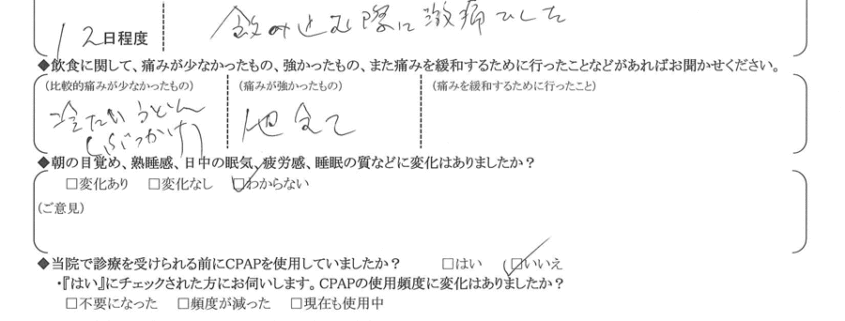 飲み込む際に激痛でした
12日程度
◆飲食に関して、痛みが少なかったもの、強かったもの、また痛みを緩和するために行ったことなどがあればお聞かせください。
(比較的痛みが少なかったもの) (痛みが強かったもの) (痛みを緩和するために行ったこと)
冷たいうどん 他全て
(ぶっかけ)
◆朝の目覚め、熟睡感、日中の眠気、疲労感、睡眠の質などに変化はありましたか?
□変化あり □変化なし ☑わからない
(ご意見)
◆当院で診療を受けられる前にCPAPを使用していましたか? □はい ☑いいえ
・『はい』にチェックされた方にお伺いします。CPAPの使用頻度に変化はありましたか?
□不要になった □頻度が減った □現在も使用中